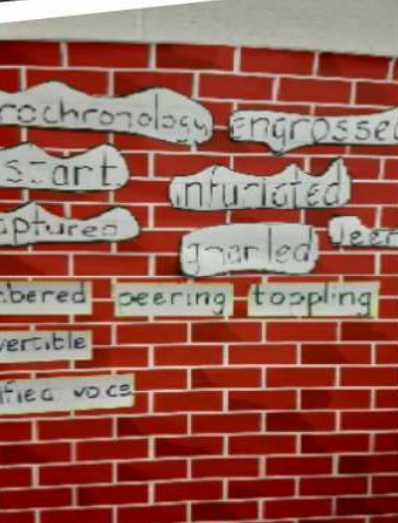 rochronology engrossed
start infuriated
aptured gnarled leer
bered peering toppling
vertible
ified voice